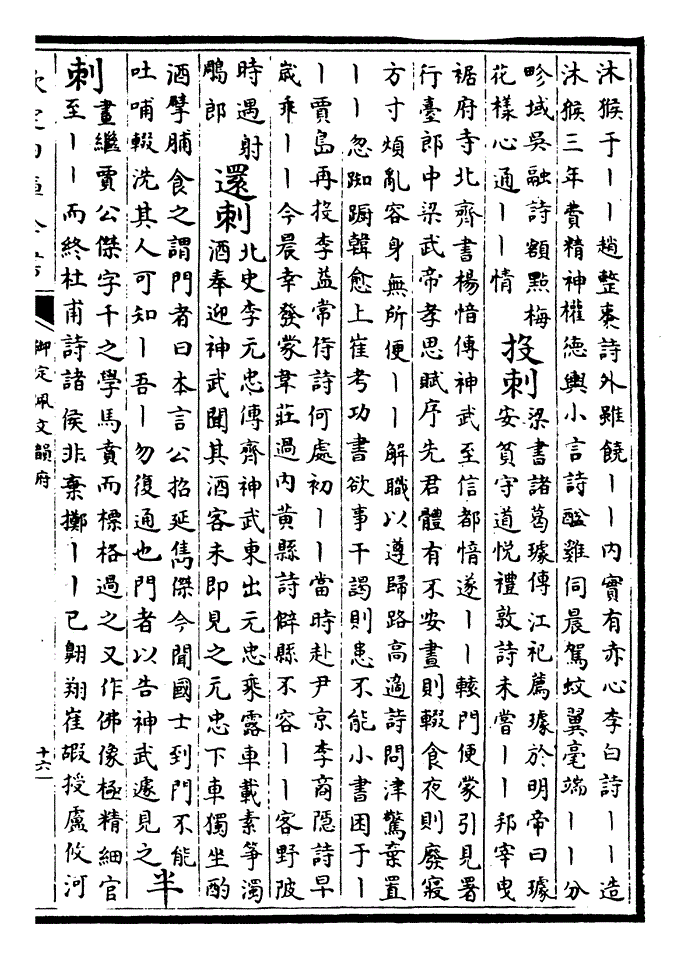 沐猴于丨丨趙整棗詩外雖饒丨丨内實有赤心李白詩丨丨造
沐猴三年費精神權德輿小言詩醯雞伺晨駕蚊翼毫端丨丨分
畛域吳融詩額點梅
花樣心通丨丨情
投刺
梁書諸葛璩傳江祀薦璩於明帝曰璩
安貧守道悦禮敦詩未嘗丨丨邦宰曳
裾府寺北齊書楊愔傳神武至信都愔遂丨丨轅門便蒙引見署
行臺郎中梁武帝孝思賦序先君體有不安晝則輟食夜則廢寢
方寸煩亂容身無所便丨丨解職以遵歸路高適詩問津驚棄置
丨丨忽踟蹰韓愈上崔考功書欲事干謁則患不能小書困于丨
丨賈島再投李益常侍詩何處初丨丨當時赴尹京李商隱詩早
歲乖丨丨今晨幸發蒙韋莊過内黄縣詩僻縣不容丨丨客野陂
時遇射
鵰郎
還刺
北史李元忠傳齊神武東出元忠乘露車載素筝濁
酒奉迎神武聞其酒客未即見之元忠下車獨坐酌
酒擘脯食之謂門者曰本言公招延雋傑今聞國士到門不能
吐哺輟洗其人可知丨吾丨勿復通也門者以告神武遽見之
半
刺
畫繼賈公傑字千之學馬賁而標格過之又作佛像極精細官
至丨丨而終杜甫詩諸侯非棄擲丨丨已翺翔崔嘏授盧攸河
欽定四庫全書
御定佩文韻府
十六